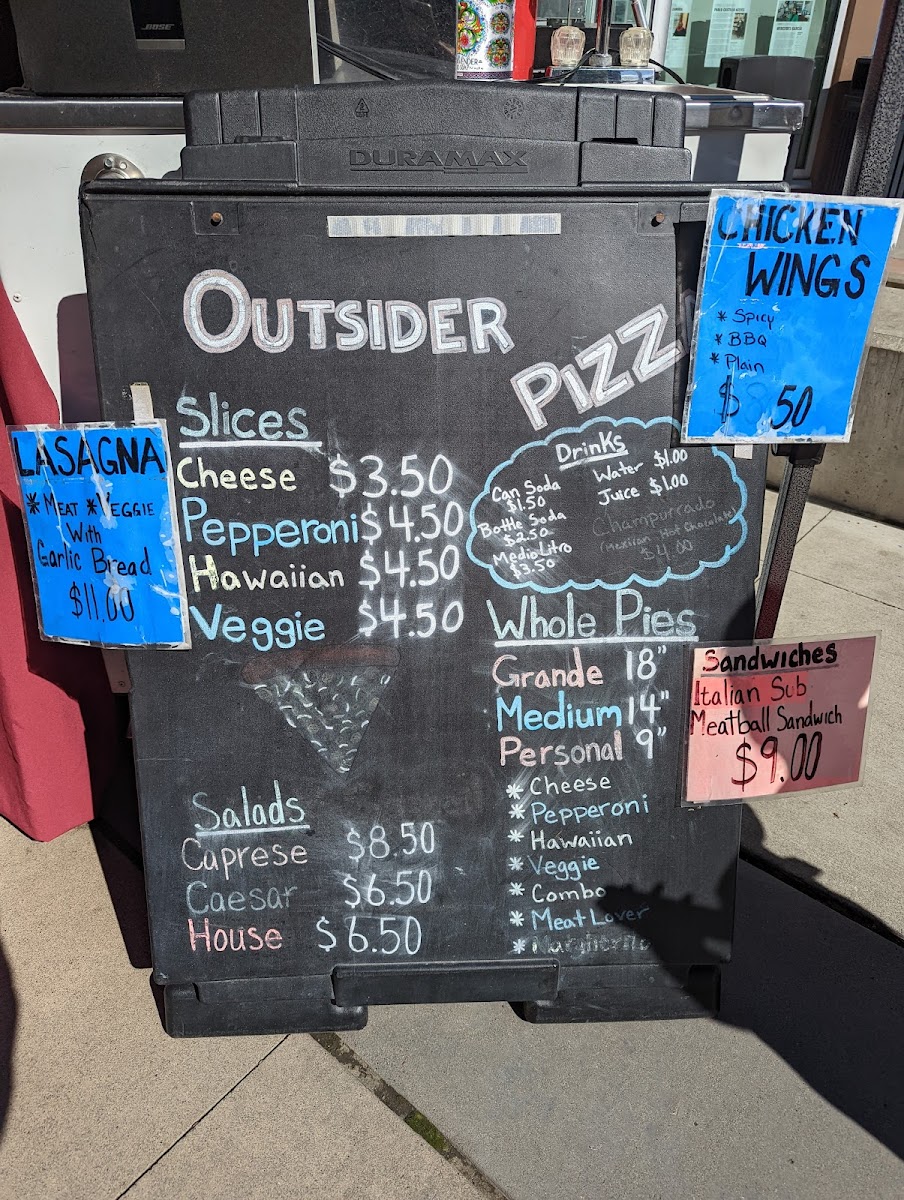 BOSE
DURAMAX
OUTSIDER
PIZZ
Slices
Cheese $3.50
Pepperoni $4.50
Hawaiian $4.50
Veggie $4.50
Salads
Caprese $8.50
Caesar $6.50
House $6.50
Drinks
Can Soda
$1.50
Bottle Soda
$2.50
Medio Litro
$3.50
Water $1.00
Juice $1.00
Champurrado
(Mexican Hot Chocolate)
$4.00
Whole Pies
Grande 18"
Medium 14"
Personal 9"
* Cheese
* Pepperoni
* Hawaiian
* Veggie
* Combo
* Meat Lover
* Margherita
LASAGNA
* MEAT * VEGGIE
With
Garlic Bread
$11.00
CHICKEN
WINGS
* Spicy
* BBQ
* Plain
$8.50
SANDWICHES
Italian Sub
Meatball Sandwich
$9.00